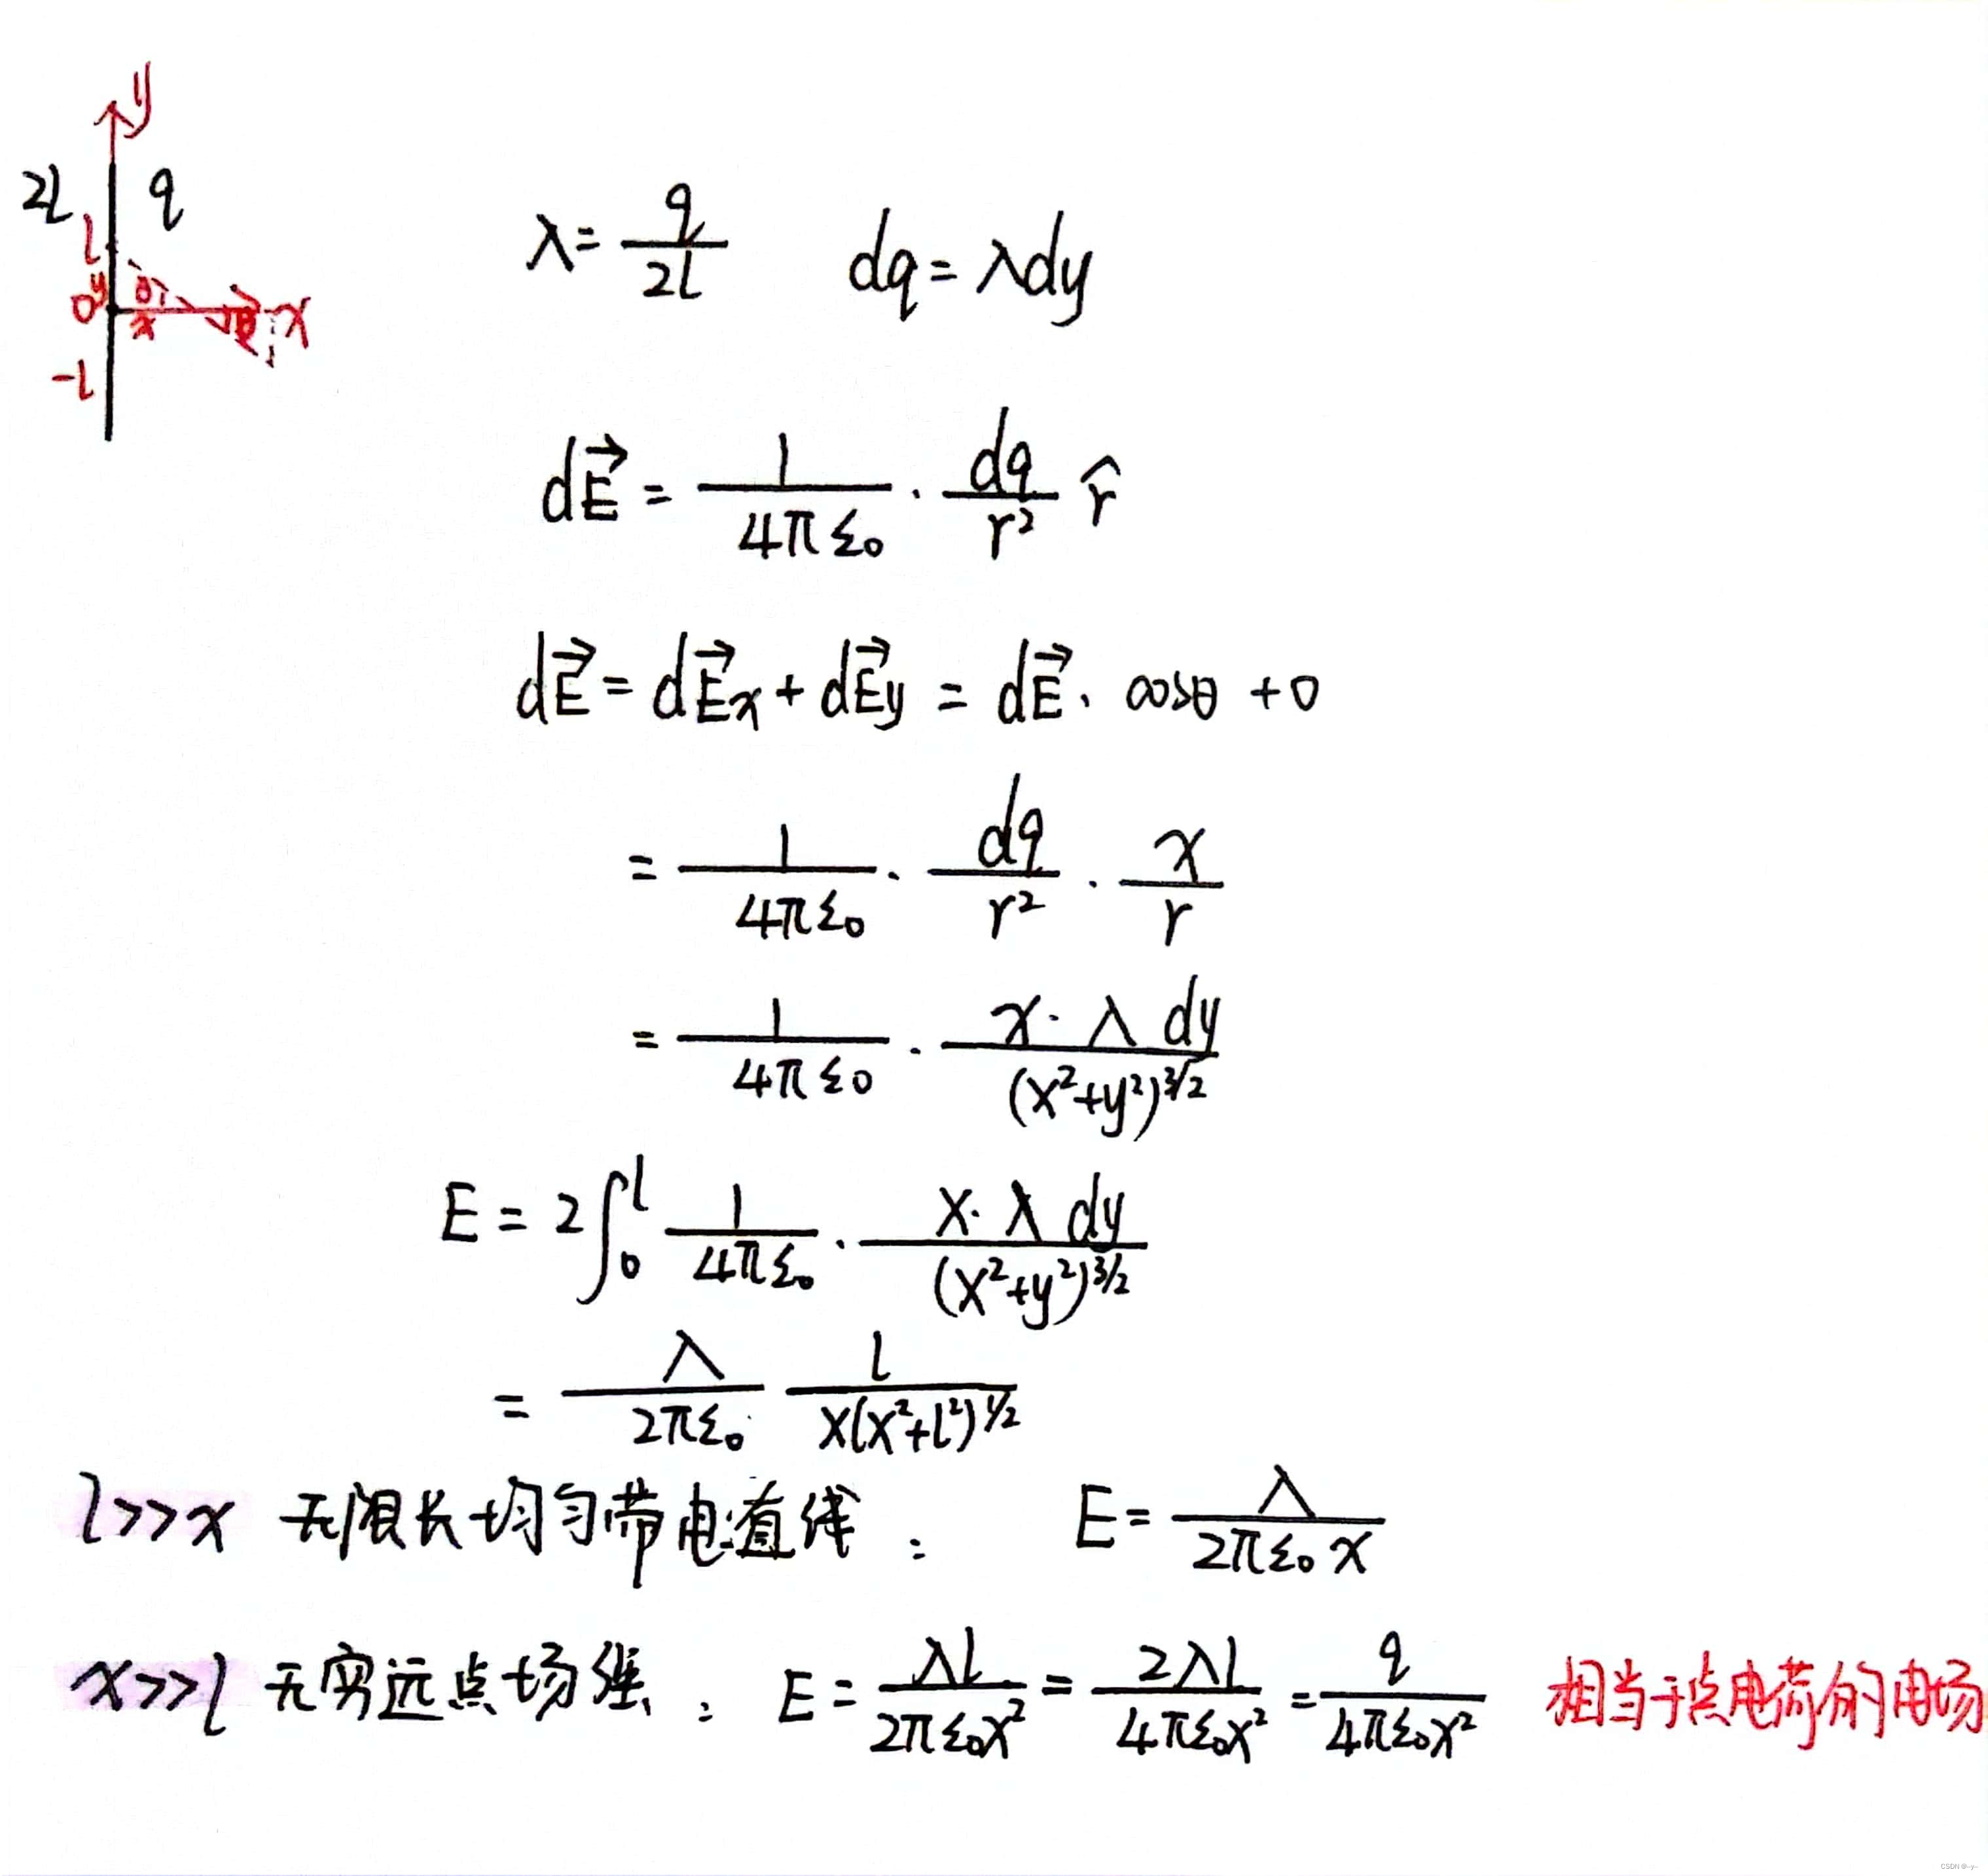 y
2l q
l
y θ
0 x θ x
-l
λ = q/2l    dq = λdy
dE⃗ = 1/4πε₀ · dq/r² r̂
dE⃗ = dE⃗x + dE⃗y = dE⃗ · cosθ + 0
= 1/4πε₀ · dq/r² · x/r
= 1/4πε₀ · x·λ dy/(x²+y²)^3/2
E = 2∫₀ˡ 1/4πε₀ · x·λ dy/(x²+y²)^3/2
= λ/2πε₀ l/x(x²+l²)^1/2
l>>x 无限长均匀带电直线： E = λ/2πε₀x
x>>l 无穷远点场强： E = λl/2πε₀x² = 2λl/4πε₀x² = q/4πε₀x² 相当于点电荷的电场
CSDN @-y-